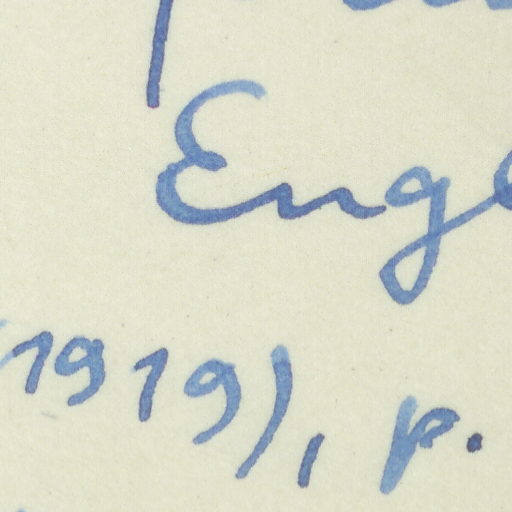 Engl
(1919), p.